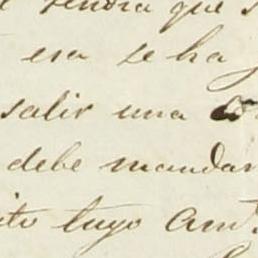 tendra que s
esa se ha
salir una co
debe mandar
ito tuyo Am.